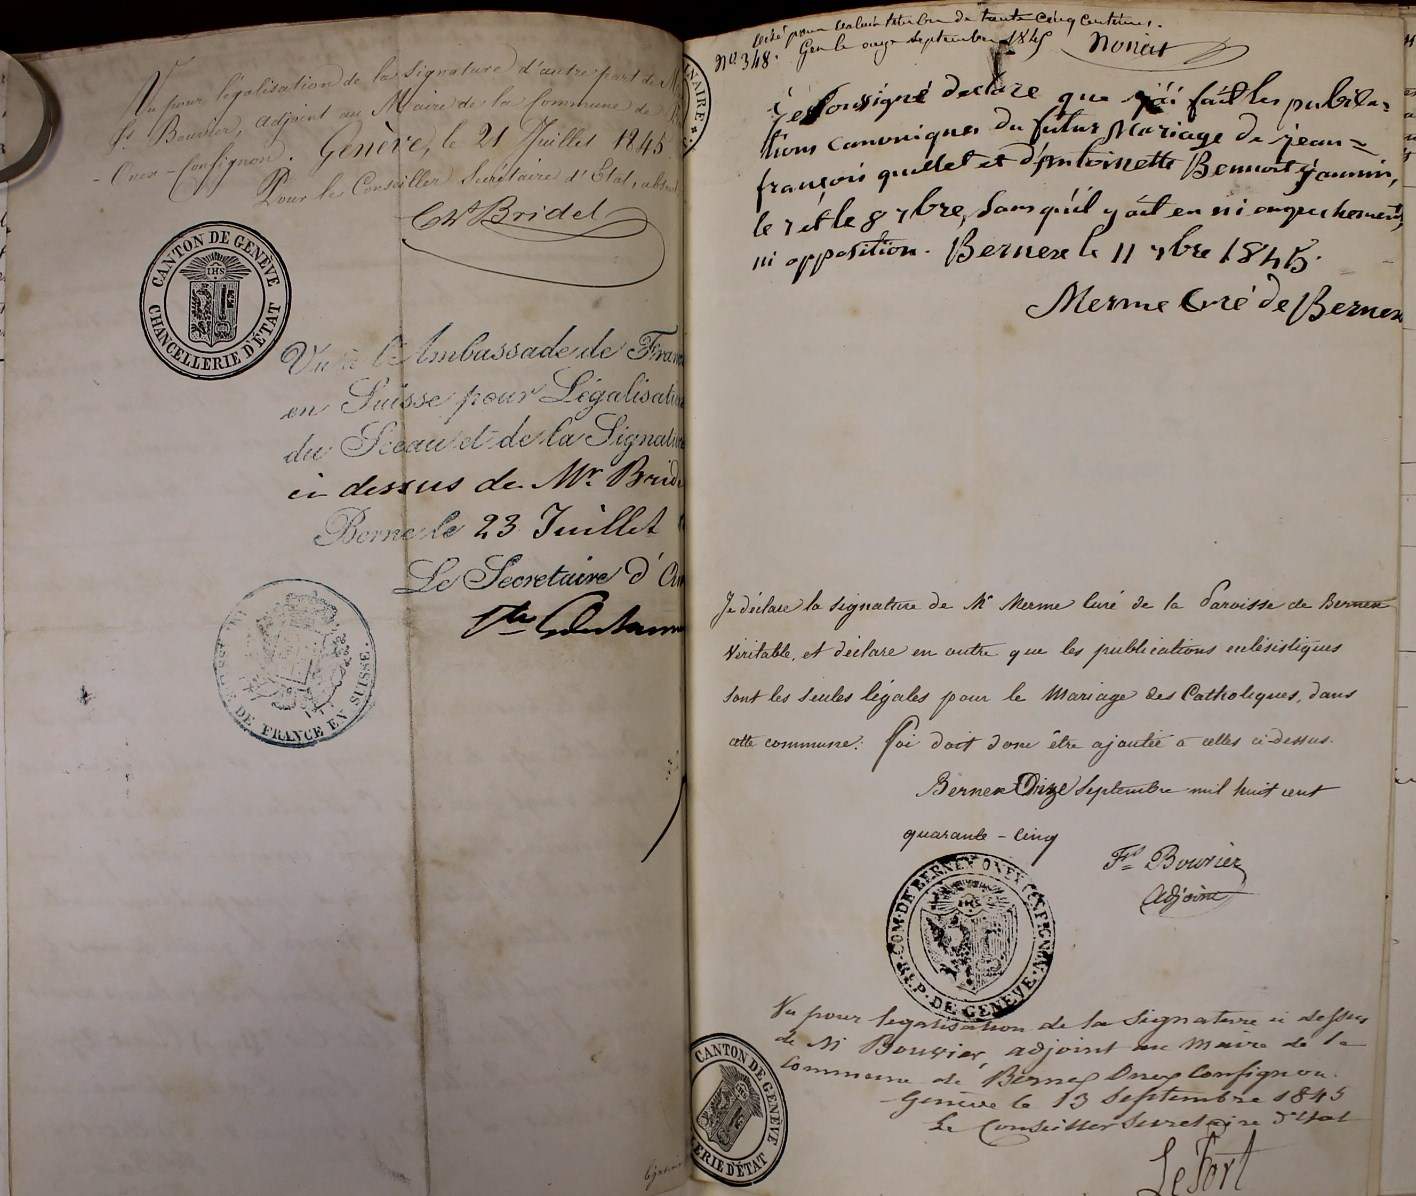 Vu pour légalisation de la signature d'autre part de M
Fs Bouvier, adjoint au Maire de la Commune de B
- Onex - Confignon. Genève, le 21 Juillet 1845
Pour le Conseiller Secrétaire d'Etat, absent
Chs Bridel
CANTON DE GENÈVE
IHS
CHANCELLERIE D'ÉTAT
Vu à l'Ambassade de Fran
en Suisse pour Légalisati
du Sceau et de la Signatu
ci dessus de Mr Bride
Berne le 23 Juillet
Le Secretaire d'Am
DE FRANCE EN SUISSE.
visé pour valoir timbre de trente cinq centimes.
Gex le onze septembre 1845
No 348.
NAIRE
je soussigné déclare que j'ai fait les publica=
tions canoniques du futur Mariage de jean=
françois quillet et d'Antoinette Bennoit jeannin,
le 7 et le 8 7bre, sans qu'il y ait eu ni empechement,
ni opposition. Bernex le 11 7bre 1845.
Merme Curé de Bernex
Je déclare la signature de Mr Merme Curé de la Paroisse de Bernex
Véritable, et déclare en outre que les publications eclésistiques
sont les seules légales pour le Mariage des Catholiques, dans
cette commune. Foi doit donc être ajoutée a celles ci-dessus.
Bernex Onze Septembre mil huit cent
quarante - Cinq
Fs Bouvier
adjoint
COM. DE BERNEX ONEX CONFIGNON.
IHS
REP. DE GENEVE
Vu pour legalisation de la Signature ci dessus
de M Bouvier, adjoint au Maire de la
Commune de Bernex Onex Confignon.
Genève le 13 Septembre 1845
Le Conseiller Secretaire d'Etat
LeFort
CANTON DE GENÈVE
ERIE D'ÉTAT